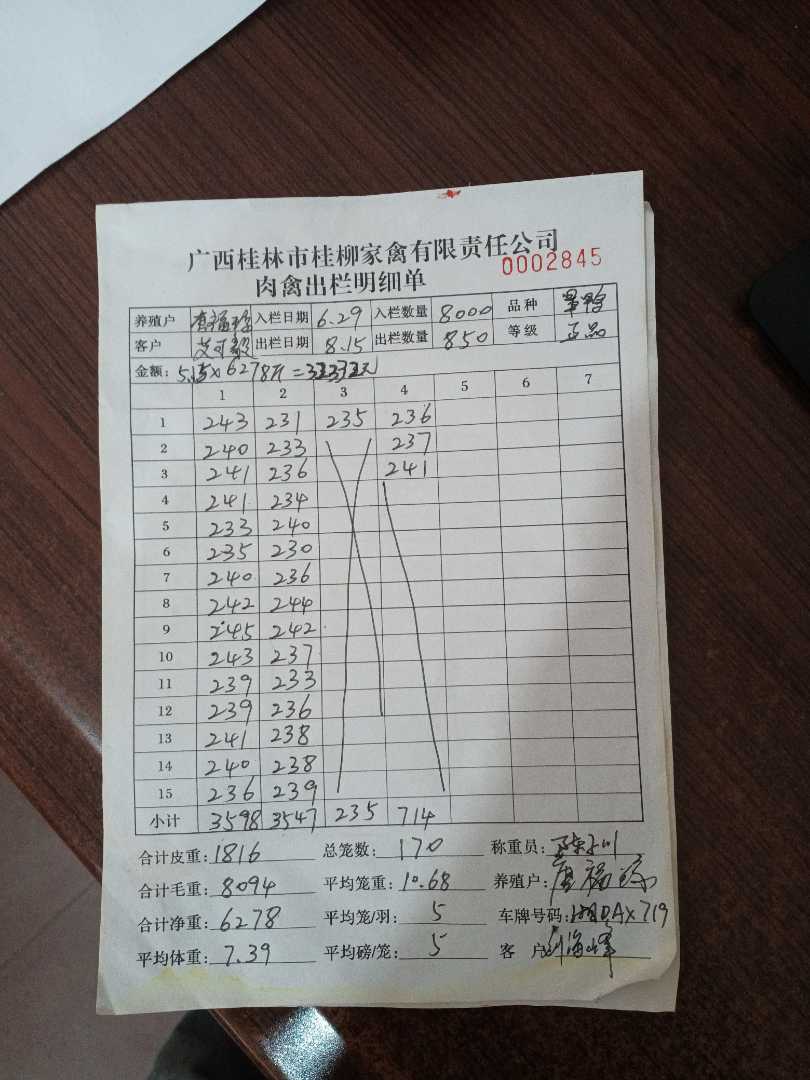 广西桂林市桂柳家禽有限责任公司
肉禽出栏明细单 0002845
养殖户 入栏日期 6.29 入栏数量 8000 品种
客户 出栏日期 8.15 出栏数量 850 等级 正品
金额: 5.15×6278斤=32332元
1 2 3 4 5 6 7
1 243 231 235 236
2 240 233 237
3 241 236 241
4 241 234
5 233 240
6 235 230
7 240 236
8 242 244
9 245 242
10 243 237
11 239 233
12 239 236
13 241 238
14 240 238
15 236 239
小计 3598 3547 235 714
合计皮重: 1816 总笼数: 170 称重员:
合计毛重: 8094 平均笼重: 10.68 养殖户:
合计净重: 6278 平均笼/羽: 5 车牌号码:
平均体重: 7.39 平均磅/笼: 5 客户 刘海峰